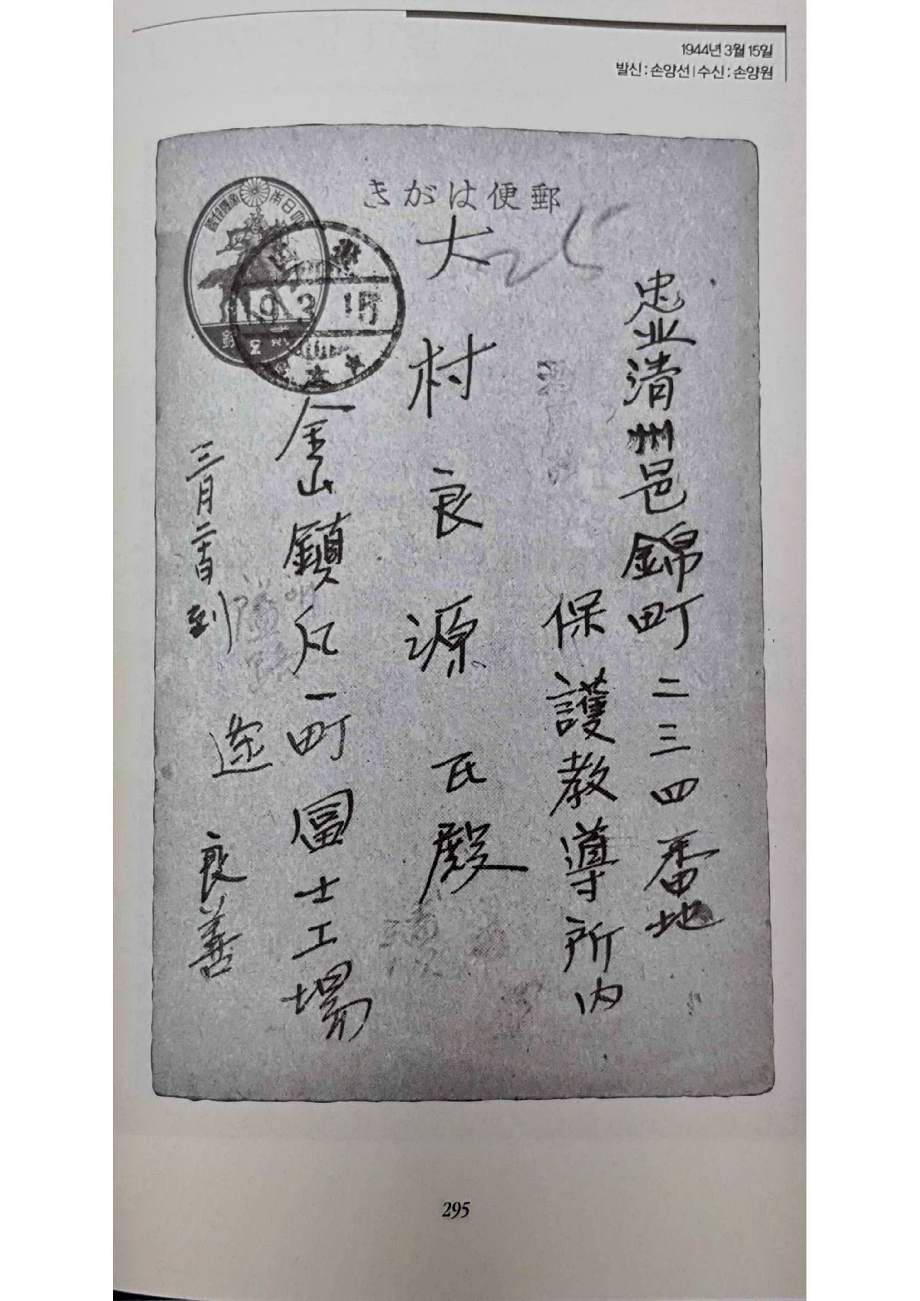 1944년 3월 15일
발신 : 손양선 | 수신 : 손양원
きがは便郵
忠北清州邑錦町二三四番地
保護教導所内
大村良源氏殿
25
金山鎮凡一町冨士工場
良善
三月二十日到
19.3.15
295